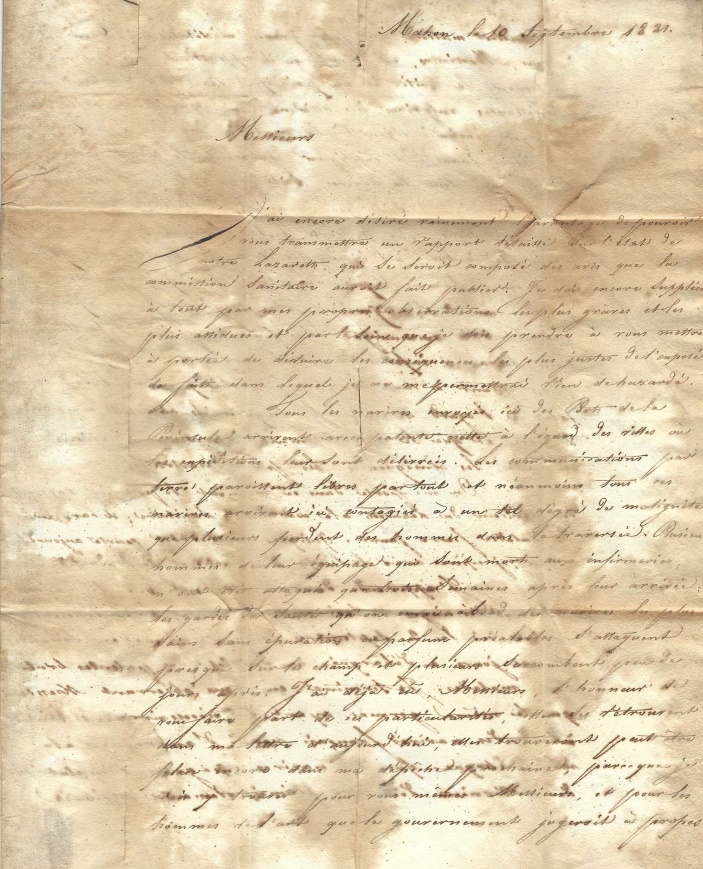 Mahon le 10 Septembre 1821.
Messieurs
J'ai encore désiré vainement l'avantage de pouvoir
vous transmettre un rapport détaillé sur l'état de
notre Lazareth, qui se seroit composé des avis que la
commission Sanitaire auroit fait publier. Je dois encore suppléer
à tout par mes propres observations les plus graves et les
plus assidues et par le soin que je dois prendre à vous mettre
à portée de déduire les conséquences les plus justes de l'exposé
de faits dans lequel je ne me permettrai rien de hazardé.
Tous les navires envoyés ici des Ports de la
Péninsule arrivent avec patente nette à l'égard des villes ou
les expéditions leur sont délivrées. Les communications par
terre paroissent libres partout et néanmoins tous ces
navires arrivent ici contagiés à un tel dégré de malignité
que plusieurs perdent des hommes dans la traversée. Plusieurs
hommes de leur équipage qui sont morts aux infirmeries
n'ont été attaqués que trois Semaines après leur arrivée.
les gardes de Santé qu'on envoie à bord des navires les plus
sains sans épuration ni parfums préalables s'attaquent
presque sur le champ et plusieurs succombent peu de
jours après. J'ai déjà eu, Messieurs, l'honneur de
vous faire part de ces particularités, elles se retrouvent
dans ma lettre d'aujourd'hui, elles trouveront peut être
place encore dans ma dépêche prochaine, parceque je
pour vous mêmes Messieurs, et pour les
hommes de l'art que le gouvernement jugeroit à propos